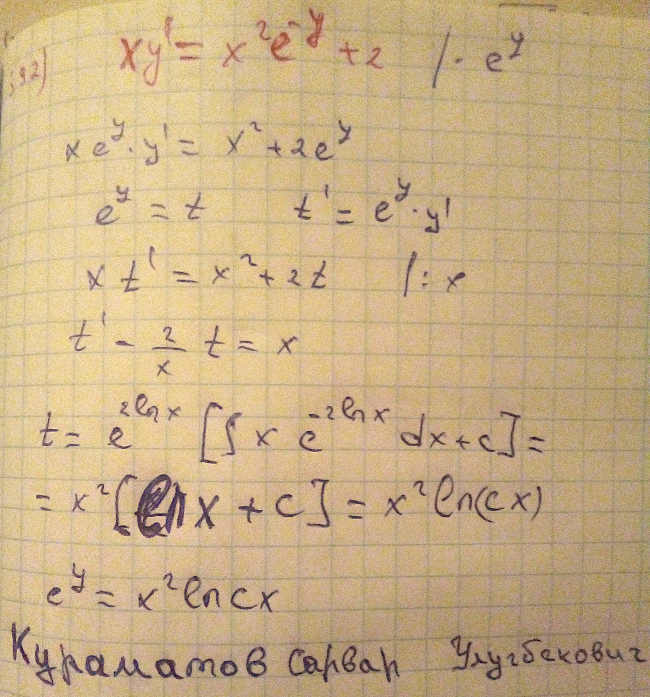 392) xy' = x²e⁻ʸ + 2 /· eʸ
xeʸ·y' = x² + 2eʸ
eʸ = t t' = eʸ·y'
xt' = x² + 2t /: x
t' - 2/x t = x
t = e^(2lnx) [∫ x e^(-2lnx) dx + c] =
= x² [ln x + c] = x² ln(cx)
eʸ = x² ln cx
Кураматов Сарвар Улугбекович